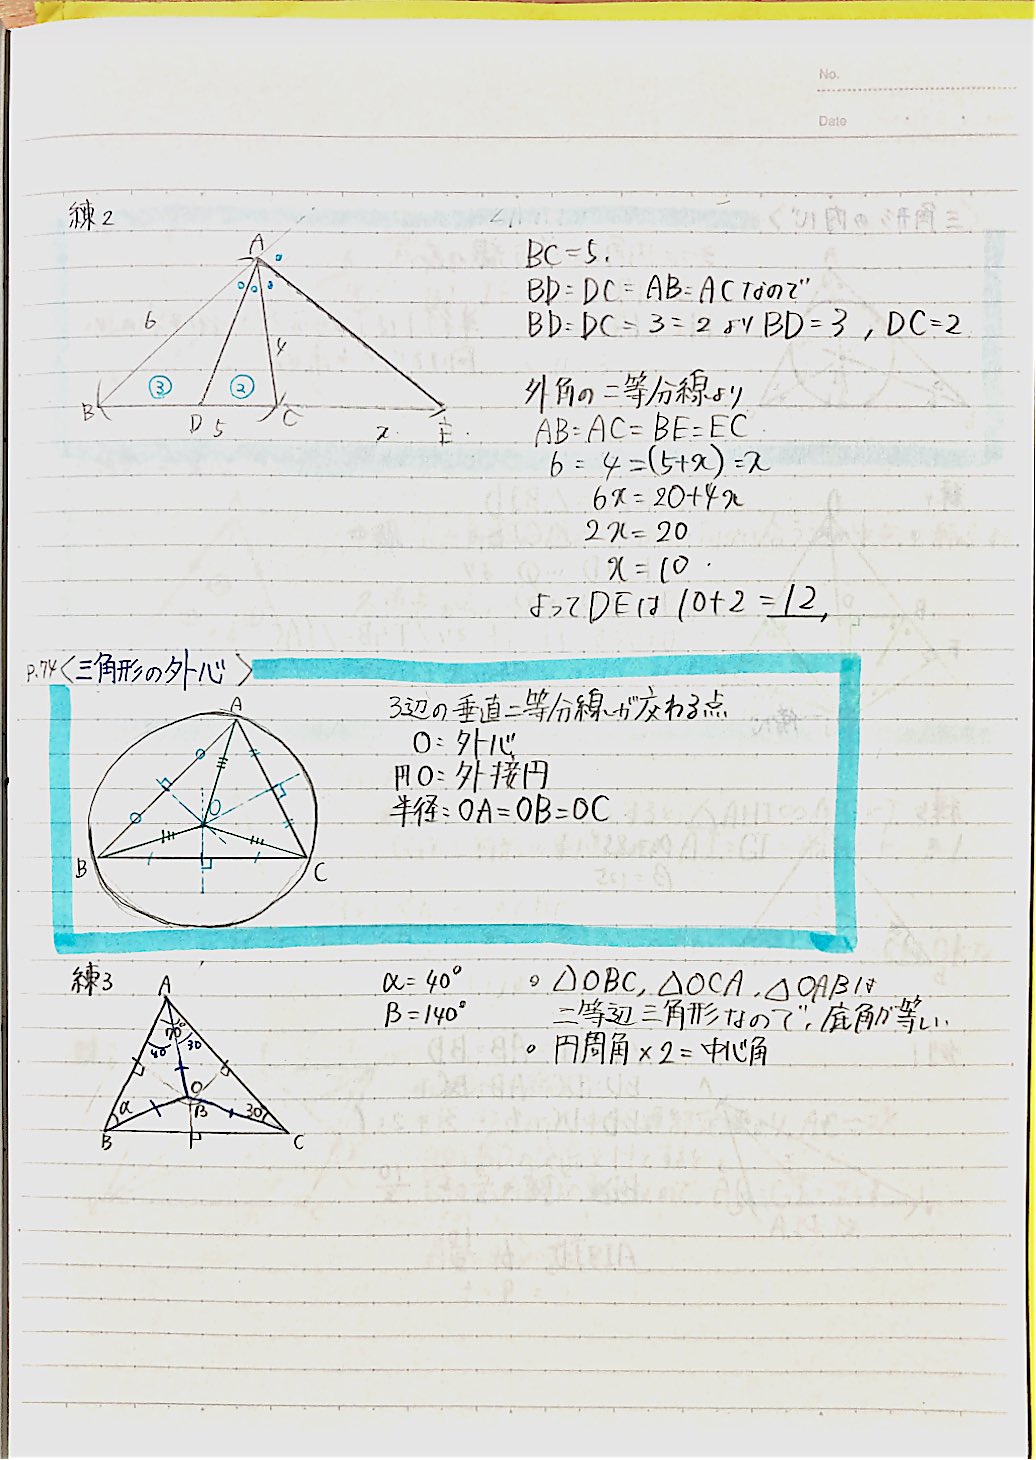 No.
Date
練2
A
6
4
③
②
B
D
5
C
x
E
BC=5.
BD:DC=AB:ACなので
BD:DC=3:2よりBD=3,DC=2
外角の二等分線より
AB:AC=BE:EC
6:4=(5+x):x
6x=20+4x
2x=20
x=10
よってDEは10+2=12,
P.74〈三角形の外心〉
A
O
B
C
3辺の垂直二等分線が交わる点
O:外心
円O:外接円
半径:OA=OB=OC
練3
A
70°
40°
30
O
α
β
30°
B
C
α=40°
β=140°
○ △OBC,△OCA,△OABは
二等辺三角形なので,底角が等しい.
○ 円周角×2=中心角